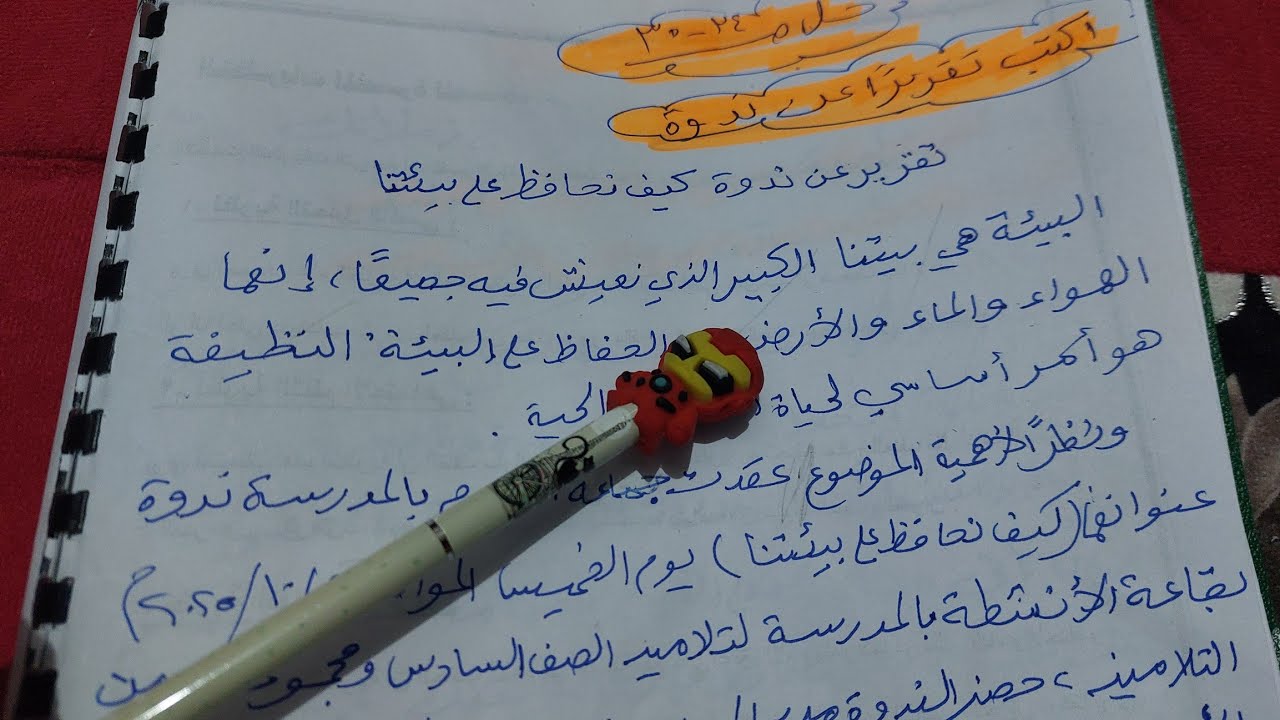 حل ص ٢٤-٣٠
اكتب تقريرًا عن ندوة
تقرير عن ندوة كيف نحافظ على بيئتنا
البيئة هي بيتنا الكبير الذي نعيش فيه جميعًا، إنها
الهواء والماء والأرض الحفاظ على البيئة النظيفة
هو أمر أساسي لحياة الحية.
ونظرًا لأهمية الموضوع عقدت جماعة بالمدرسة ندوة
عنوانها (كيف نحافظ على بيئتنا) يوم الخميس
بقاعة الأنشطة بالمدرسة لتلاميذ الصف السادس من
التلاميذ، حضر الندوة